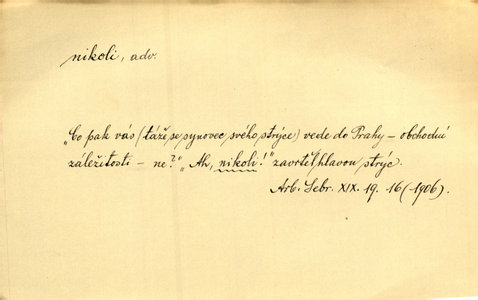 nikoli, adv.
„Co pak vás (táže se synovec svého strýce) vede do Prahy – obchodní
záležitosti – ne?“ „Ah, nikoli!“ zavrtěl hlavou strýc.
Arb. Sebr. XIX. 19. 16 (1906).